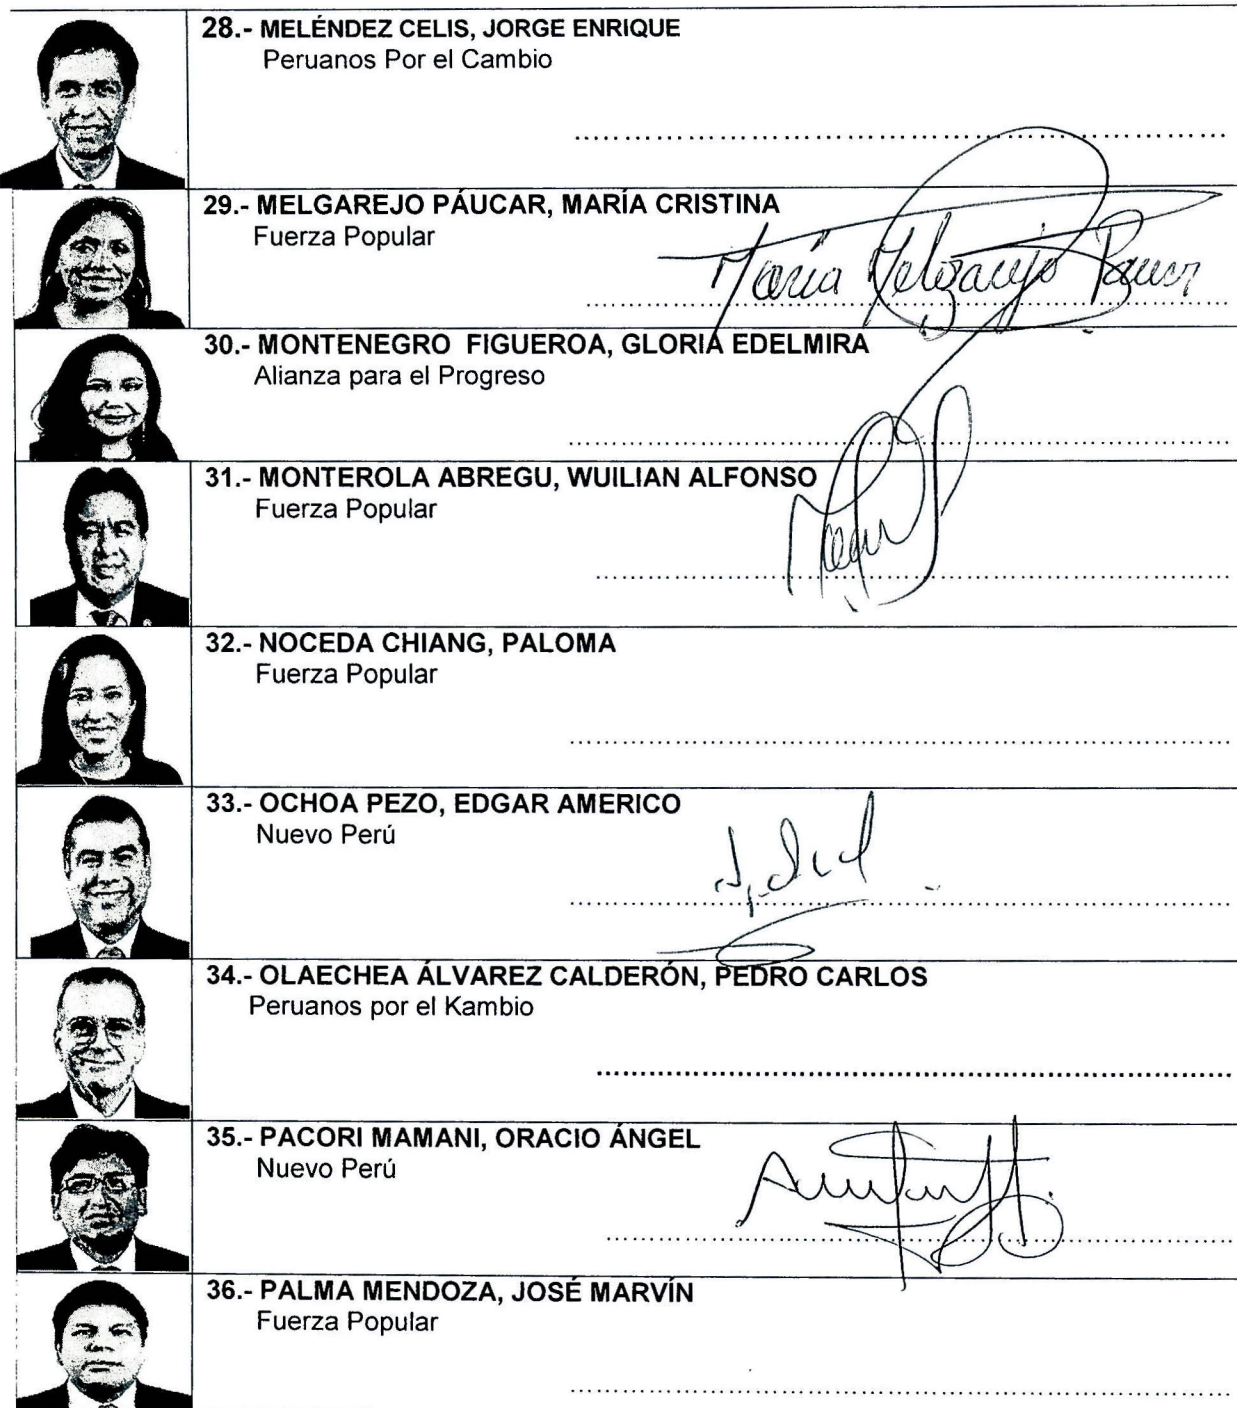 28.- MELÉNDEZ CELIS, JORGE ENRIQUE
Peruanos Por el Cambio
29.- MELGAREJO PÁUCAR, MARÍA CRISTINA
Fuerza Popular
María Melgarejo Paucar
30.- MONTENEGRO FIGUEROA, GLORIA EDELMIRA
Alianza para el Progreso
31.- MONTEROLA ABREGU, WUILIAN ALFONSO
Fuerza Popular
32.- NOCEDA CHIANG, PALOMA
Fuerza Popular
33.- OCHOA PEZO, EDGAR AMERICO
Nuevo Perú
34.- OLAECHEA ÁLVAREZ CALDERÓN, PEDRO CARLOS
Peruanos por el Kambio
35.- PACORI MAMANI, ORACIO ÁNGEL
Nuevo Perú
36.- PALMA MENDOZA, JOSÉ MARVÍN
Fuerza Popular